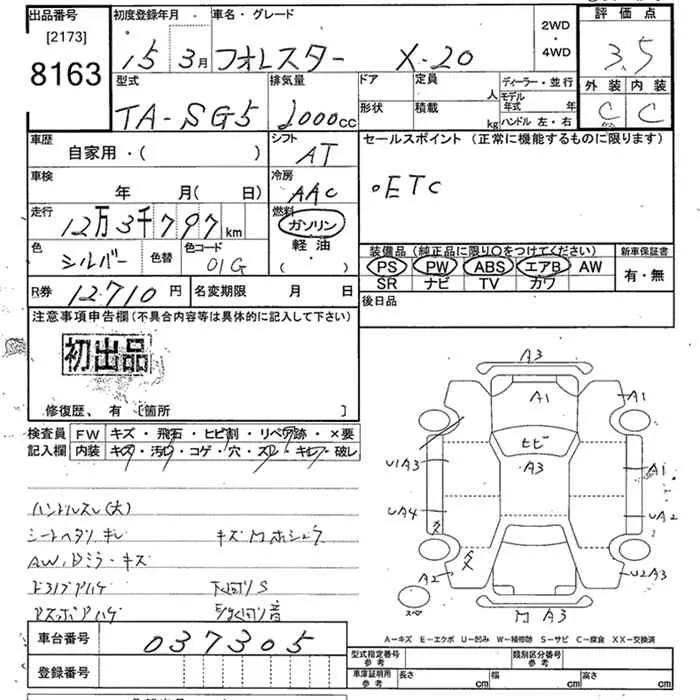 出品番号
[2173]
8163
初度登録年月
15年 3月
車名・グレード
フォレスター X・20
2WD
・
4WD
評価点
3.5
外装 内装
C C
型式
TA-SG5
排気量
2000cc
ドア
形状
定員 人
積載 kg
ディーラー・並行
モデル年式 年
ハンドル 左・右
車歴
自家用・( )
シフト
AT
セールスポイント (正常に機能するものに限ります)
・ETC
車検
年 月( 日)
冷房
AAC
走行
12万3千797km
燃料
ガソリン
軽油
( ・ )
色
シルバー
色替
色コード
01G
装備品(純正品に限り○をつけてください)
PS PW ABS エアB AW
SR ナビ TV カワ
新車保証書
有・無
R券 12,710円
名変期限 月 日
後日品
注意事項申告欄(不具合内容等は具体的に記入して下さい)
初出品
修復歴、有 〔箇所 〕
検査員
記入欄
FW キズ・飛石・ヒビ割・リペア跡・×要
内装 キズ・汚レ・コゲ・穴・スレ・キレ・破レ
ハンドルスレ(大)
シートヘタリ キレ キズMホシュウ
AW,Dミラーキズ
下回りS
A3
A1
A1
ヒビ
A3
U1A3
A1
UA4
UA2
A2
U2A3
スペア
M A3
A-キズ E-エクボ U-凹み W-補修跡 S-サビ C-腐食 XX-交換済
車台番号 037305
登録番号
型式指定番号
参考
類別区分番号
参考
車庫証明用
参考
長さ cm 幅 cm 高さ cm